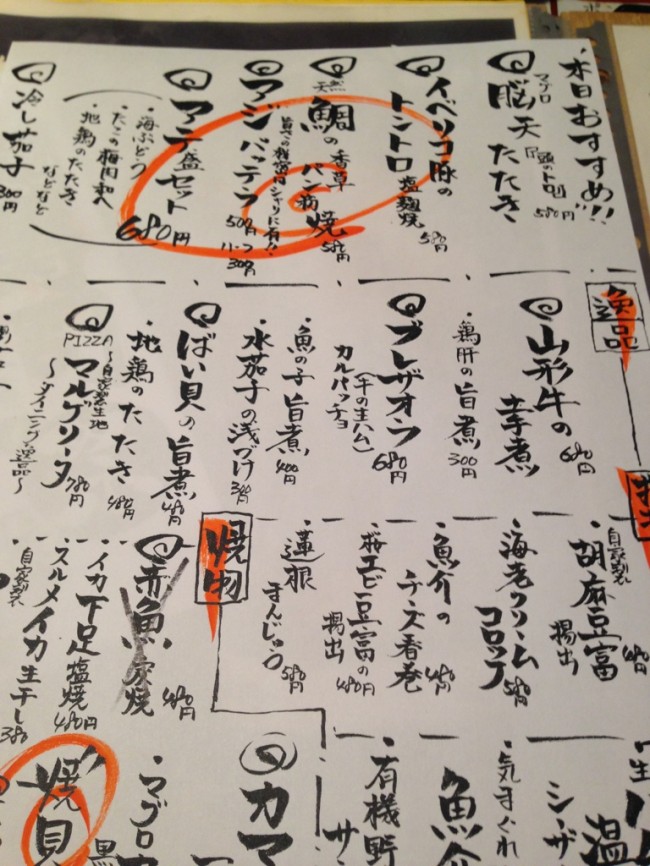 本日おすすめ!!
マグロ
脳天たたき
580円
イベリコ豚の
トントロ塩麹焼
580円
天然
鯛の香草
パン粉焼
580円
アジバッテラ
500円
ハーフ
300円
アテ盛セット
680円
・海ぶどう
・たこの梅肉和へ
・地鶏のたたき
などなど
冷し茄子
300円
逸品
山形牛の
辛煮
680円
・鶏肝の旨煮
300円
ブレザオラ
(牛の生ハム)
カルパッチョ
680円
・魚の子旨煮
400円
・水茄子の浅づけ
300円
ばい貝の旨煮
・地鶏のたたき
480円
PIZZA
〜自家製生地
マルゲリータ
780円
〜ダイニングの逸品〜
・自家製
胡麻豆富
揚出
480円
・海老クリーム
コロッケ
580円
・魚介の
チーズ春巻
480円
・桜エビ豆富の
揚出
480円
・蓮根
まんじゅう
580円
焼物
赤魚
480円
・イカ下足塩焼
480円
自家製
スルメイカ生干し
380
生
シーザ
温
・気まぐれ
魚介
・有機野
サ
カマ
・マグロカ
焼貝